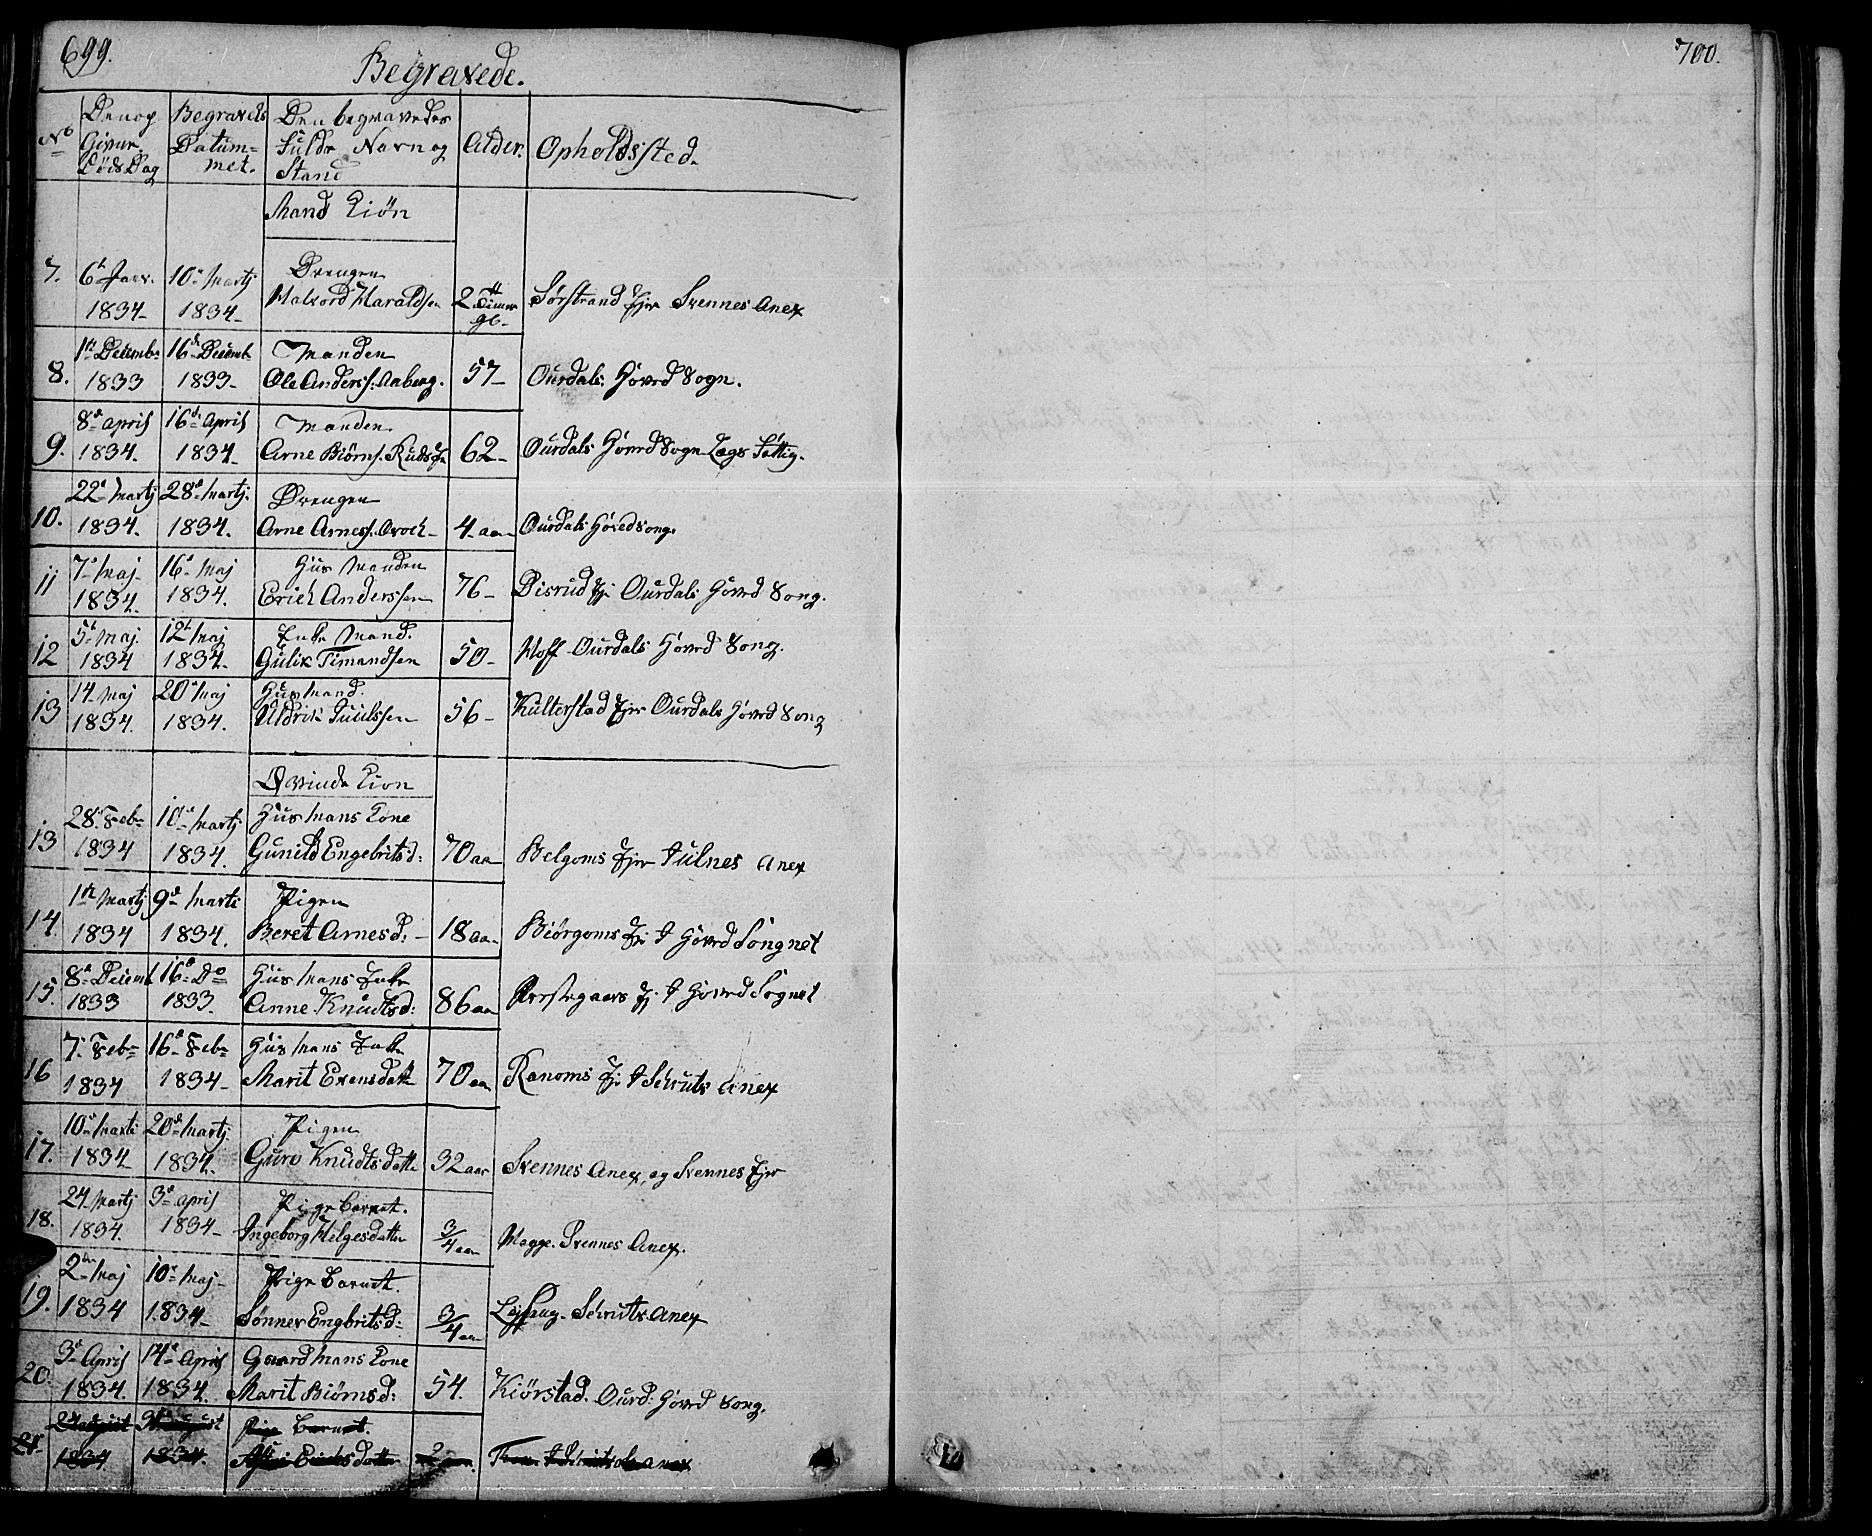 699.
Begravede.
No
Den og Givne Døds Dag
Begravels Datum= met.
Den begravedes fulde Navn og Stand
Alder.
Opholdssted.
Mand Kiön
7. 6te Janr. 1834 10de Martj 1834 Drengen Halvord Haraldsen 2 Timer gl. Sörstrand Ejer Svennes Anex
8. 1te Decemb. 1833 16de Decemb. 1833 Manden Ole Anders. Aaberg. 57 Ourdals Hoved Sogn.
9. 8de April 1834. 16de April 1834 Manden Arne Biörns. Ruds 62 Ourdals Hoved Sogn Lægs Fattig.
10. 22de Martj 1834. 28de Martj. 1834. Drengen Arne Arnes. 4 aar Ourdals Hoved song.
11 7de Maj 1834. 16de Maj 1834. Huus Manden Erich Anderssen 76 Disrud Ej. Ourdals Hoved Song.
12 5te Maj. 1834 12te Maj 1834 Enke Mand. Gulik Timandsen 50 Hoff Ourdals Hoved Song.
13 14. Maj 1834. 20de Maj 1834. Huusmand. Uldrik Juulssen 56 Kulterstad Ejer Ourdals Hoved Song
Qvinde Kion
13 28de Febr 1834 10de Martj 1834. Huusmans Kone Gunild Engebritsd: 70 aar Belgoms Ejer Ulnes Anex
14. 1te Martj 1834 9de Marti 1834. Pigen Beret Arnesd: 18 aar Biörgoms Ejer I Hoved Songnet
15. 8de Decemb 1833 16de Do 1833. Huusmans Enke Anne Knudtsd: 86 aar Prestegaars Ej. I Hoved Sognet
16 7de Febr 1834 16de Febr 1834 Huusmans Enke Marit Evensdatt 70 aar Ranoms Ejer I Schruts Anex
17. 10de Marti 1834 20de Martj. 1834. Pigen Guro Knudtsdatte 32 aar Svennes Anex, og Svennes Ejer
18. 24 Martj 1834. 3de April 1834 Pige Barnet. Ingeborg Helgesdatter 3/4 aar Hagge. Svennes Anex.
19. 2den Maj 1834 10de Maj 1834 Pige Barnet. Sönnev Engbritsd: 3/4 aar Schruts. Anex
20. 3de April 1834. 14de April 1834. Gaardmans Kone Marit Biörnsd: 54. Kiörstad. Ourd: Hoved Song.
21. 24 August 1834. August 1834. Pige Barnet. Erichsdatter 2 aar. I Schruts Anex
700.